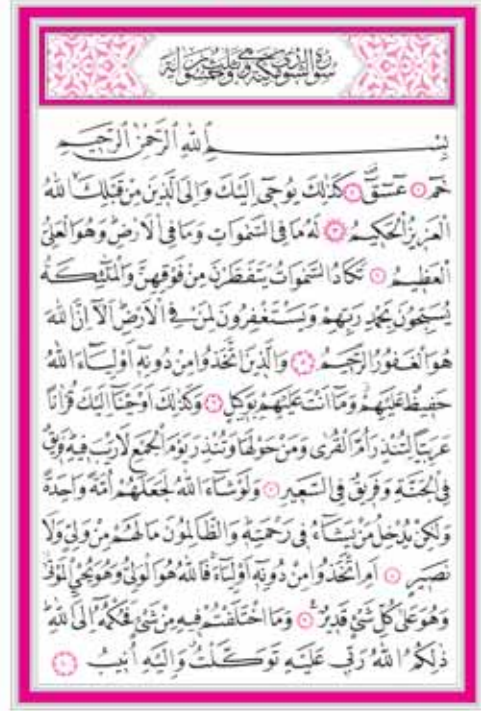 سورة الشورى مكية وهى ثلث وخمسون اية
بِسْمِ اللهِ الرَّحْمٰنِ الرَّحٖيمِ
حٰمٓ ۝ عٓسٓقٓ ۝ كَذٰلِكَ يُوحٖٓى اِلَيْكَ وَاِلَى الَّذٖينَ مِنْ قَبْلِكَۙ اللهُ
الْعَزٖيزُ الْحَكٖيمُ ۝ لَهُ مَا فِى السَّمٰوَاتِ وَمَا فِى الْاَرْضِؕ وَهُوَ الْعَلِىُّ
الْعَظٖيمُ ۝ تَكَادُ السَّمٰوَاتُ يَتَفَطَّرْنَ مِنْ فَوْقِهِنَّ وَالْمَلٰٓئِكَةُ
يُسَبِّحُونَ بِحَمْدِ رَبِّهِمْ وَيَسْتَغْفِرُونَ لِمَنْ فِى الْاَرْضِؕ اَلَٓا اِنَّ اللهَ
هُوَ الْغَفُورُ الرَّحٖيمُ ۝ وَالَّذٖينَ اتَّخَذُوا مِنْ دُونِهٖٓ اَوْلِيَٓاءَ اللهُ
حَفٖيظٌ عَلَيْهِمْؗ وَمَٓا اَنْتَ عَلَيْهِمْ بِوَكٖيلٍ ۝ وَكَذٰلِكَ اَوْحَيْنَٓا اِلَيْكَ قُرْاٰنًا
عَرَبِيًّا لِتُنْذِرَ اُمَّ الْقُرٰى وَمَنْ حَوْلَهَا وَتُنْذِرَ يَوْمَ الْجَمْعِ لَا رَيْبَ فٖيهِؕ فَرٖيقٌ
فِى الْجَنَّةِ وَفَرٖيقٌ فِى السَّعٖيرِ ۝ وَلَوْ شَٓاءَ اللهُ لَجَعَلَهُمْ اُمَّةً وَاحِدَةً
وَلٰكِنْ يُدْخِلُ مَنْ يَشَٓاءُ فٖى رَحْمَتِهٖؕ وَالظَّالِمُونَ مَا لَهُمْ مِنْ وَلِىٍّ وَلَا
نَصٖيرٍ ۝ اَمِ اتَّخَذُوا مِنْ دُونِهٖٓ اَوْلِيَٓاءَۚ فَاللهُ هُوَ الْوَلِىُّ وَهُوَ يُحْيِى الْمَوْتٰىؗ
وَهُوَ عَلٰى كُلِّ شَیْءٍ قَدٖيرٌ ۝ وَمَا اخْتَلَفْتُمْ فٖيهِ مِنْ شَیْءٍ فَحُكْمُهُٓ اِلَى اللهِؕ
ذٰلِكُمُ اللهُ رَبّٖى عَلَيْهِ تَوَكَّلْتُؗ وَاِلَيْهِ اُنٖيبُ ۝